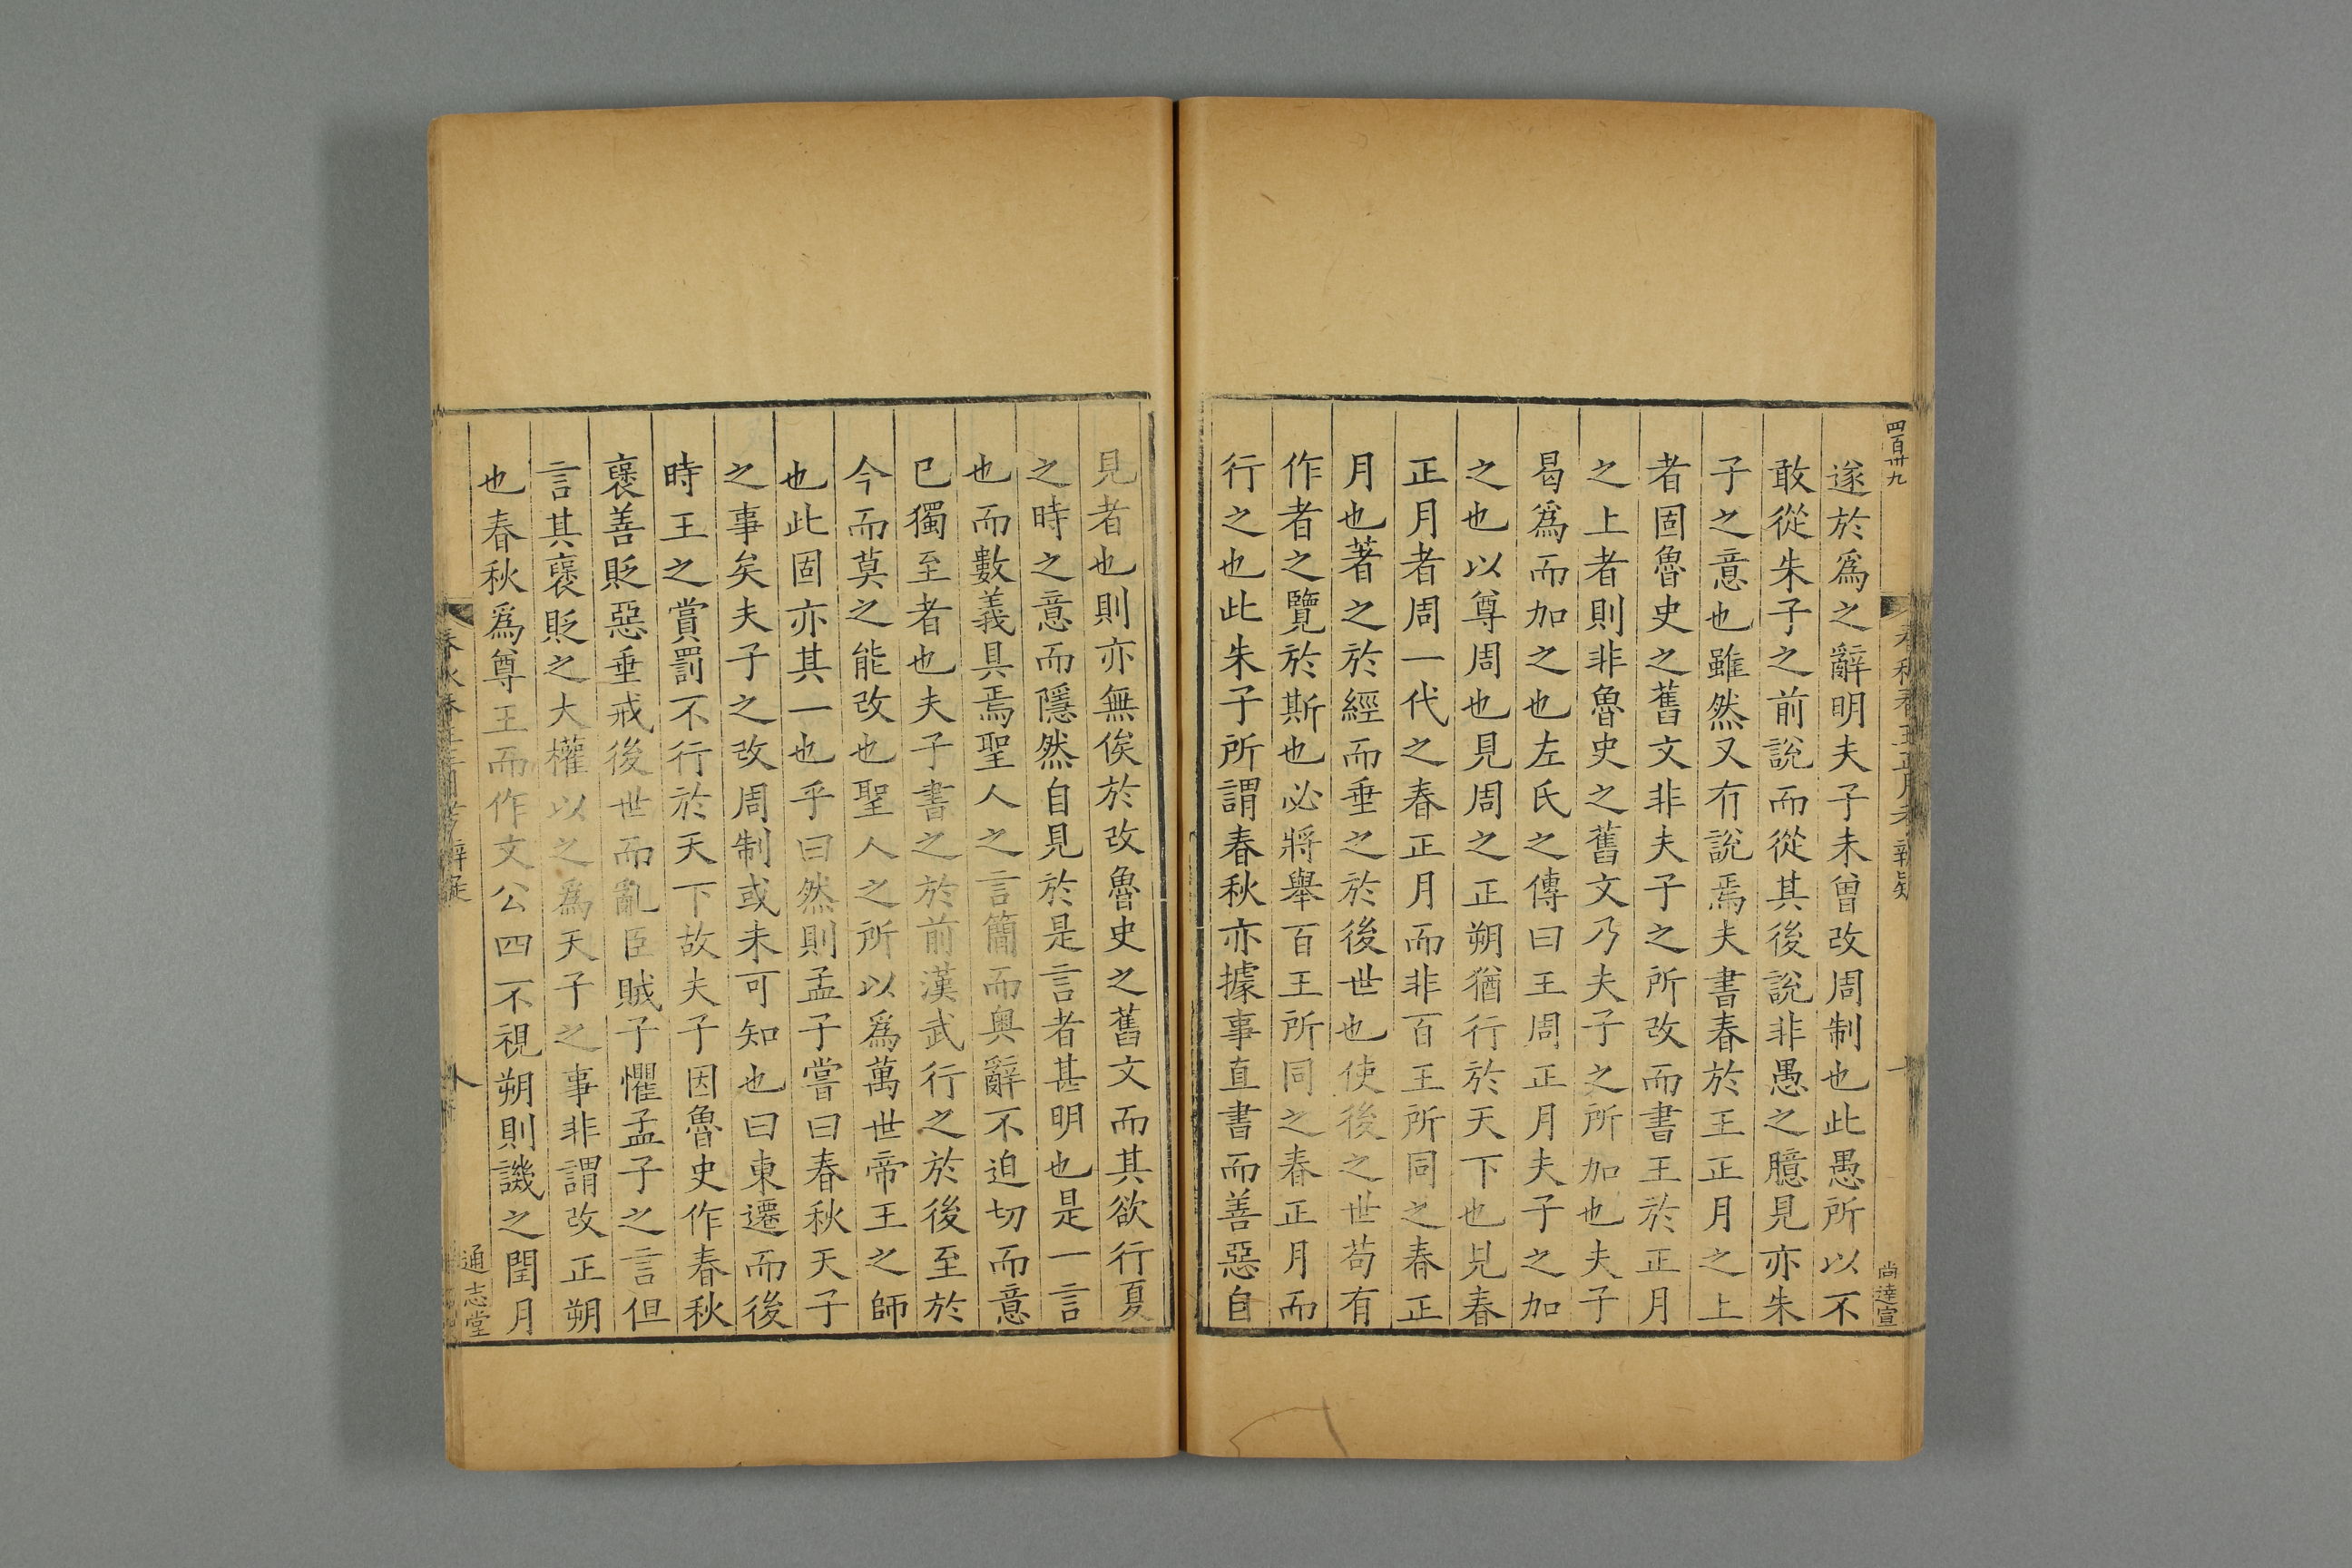 四百卅九
春秋春王正月考 辨疑
尚逹宣
遂於爲之辭明夫子未曾改周制也此愚所以不
敢從朱子之前說而從其後說非愚之臆見亦朱
子之意也雖然又有說焉夫書春於王正月之上
者固魯史之舊文非夫子之所改而書王於正月
之上者則非魯史之舊文乃夫子之所加也夫子
曷爲而加之也左氏之傳曰王周正月夫子之加
之也以尊周也見周之正朔猶行於天下也見春
正月者周一代之春正月而非百王所同之春正
月也著之於經而垂之於後世也使後之世苟有
作者之覽於斯也必將舉百王所同之春正月而
行之也此朱子所謂春秋亦據事直書而善惡自
見者也則亦無俟於改魯史之舊文而其欲行夏
之時之意而隱然自見於是言者甚明也是一言
也而數義具焉聖人之言簡而奧辭不迫切而意
已獨至者也夫子書之於前漢武行之於後至於
今而莫之能改也聖人之所以爲萬世帝王之師
也此固亦其一也乎曰然則孟子嘗曰春秋天子
之事矣夫子之改周制或未可知也曰東遷而後
時王之賞罰不行於天下故夫子因魯史作春秋
襃善貶惡垂戒後世而亂臣賊子懼孟子之言但
言其襃貶之大權以之爲天子之事非謂改正朔
也春秋爲尊王而作文公四不視朔則譏之閏月
春秋春王正月考 辨疑
八
通志堂